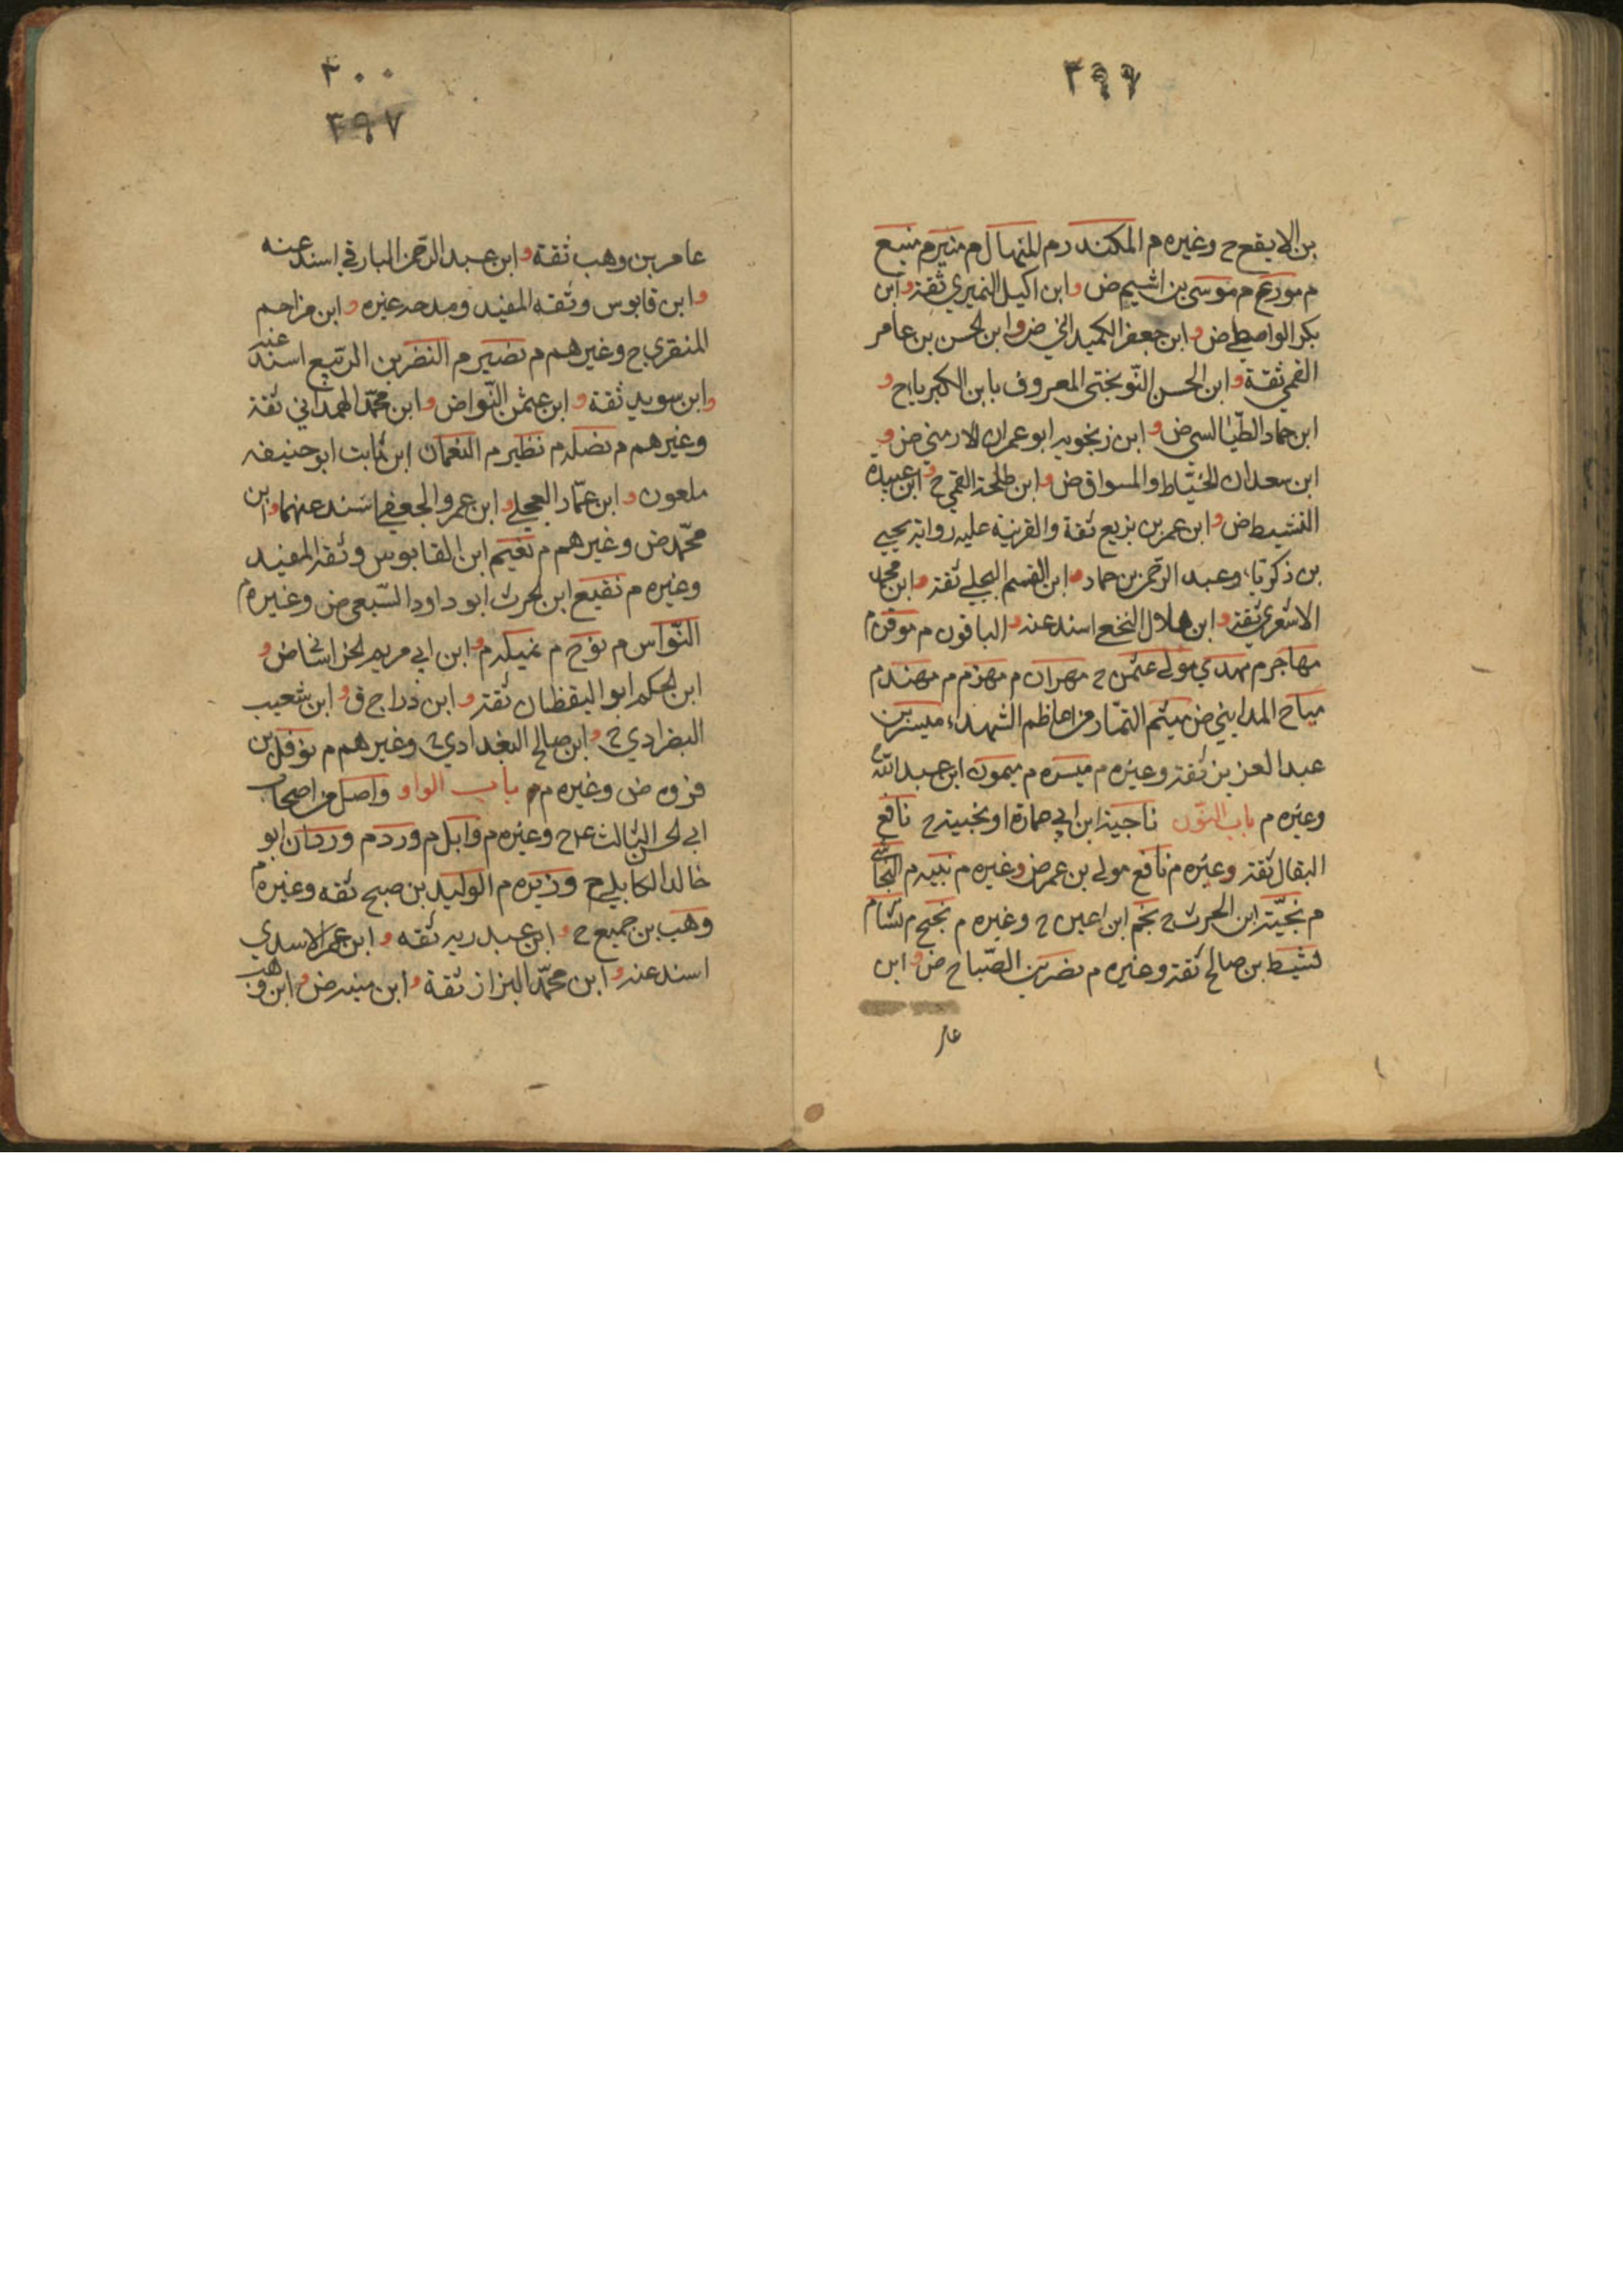 ٣٩٩
بن الايقح ح وغيره م المكند رم المنهال م منير م منيع
م مورع م موسى بن اشيم ض وابن اكيل النميري ثقة وابن
بكر الواصطي ض وابن جعفر الكميداني ض وابن الحسن بن عامر
القمي ثقة وابن الحسن النوبختي المعروف بابن الكبرياء ح و
ابن حماد الطيالسي ض وابن زنجويه ابو عمران الارمني ض و
ابن سعدان الخياط والمسواق ض وابن طلحة القمي ح وابن عبيدة
النشيط ض وابن عمر بن بزيع ثقة والقرنية عليه رواية يحيى
بن زكريا، وعبد الرحمن بن حماد وابن القسم البجلي ثقة وابن محمد
الاشعري ثقة وابن هلال النخع اسند عنه والباقون م موفق م
مهاجر م مهدي مولى عثمن ح مهران م مهزم م مهند م
مياح المدايني ض ميثم التمار من اعاظم الشهداء ميسر بن
عبد العزيز ثقة وغيره م ميسره م ميمون ابن عبد الله
وغيره م باب النون ناجية ابن ابي عمارة او نجبية ح نافع
البقال ثقة وغيره م نافع مولى بن عمر ض وغيره م نبيه م النجاشي
م نجية ابن الحرث ح نجم ابن اعين ح وغيره م نجيح م نشام
نشيط بن صالح ثقة وغيره م نصر بن الصباح ض وابن
عار
٣٠٠
٣٩٧
عامر بن وهب ثقة وابن عبد الرحمن البارقي اسند عنه
وابن قابوس وثقه المفيد ومدحه غيره وابن مزاحم
المنقري ح وغيرهم م نصير م النضر بن الربيع اسند عنه
وابن سويد ثقة وابن عثمن النوا ض وابن محمد الهمداني ثقة
وغيرهم م نضله م نظير م النعمان ابن ثابت ابو حنيفه
ملعون وابن عمار العجلي وابن عمرو الجعفي اسند عنهما وابن
محمد ض وغيرهم م نعيم ابن القابوس وثقه المفيد
وغيره م نقيع ابن الحرث ابو داود السبعي ض وغيره م
النواس م نوح م نميله م وابن ابي مريم الخراساني ض و
ابن الحكم ابو اليقظان ثقة وابن دراج ق وابن شعيب
البغدادي ح وابن صالح البغدادي ح وغيرهم م نوفل بن
فروه ض وغيره م باب الواو واصل من اصحاب
ابي الحسن الثالث ع ح وغيره م وابل م ورد م وردان ابو
خالد الكابلي ح وزيره م الوليد بن صبح ثقه وغيره م
وهب بن جميع ح وابن عبد ربه ثقه وابن عمر الاسدي
اسند عنه وابن محمد البزاز ثقة وابن منبه ض وابن وهب